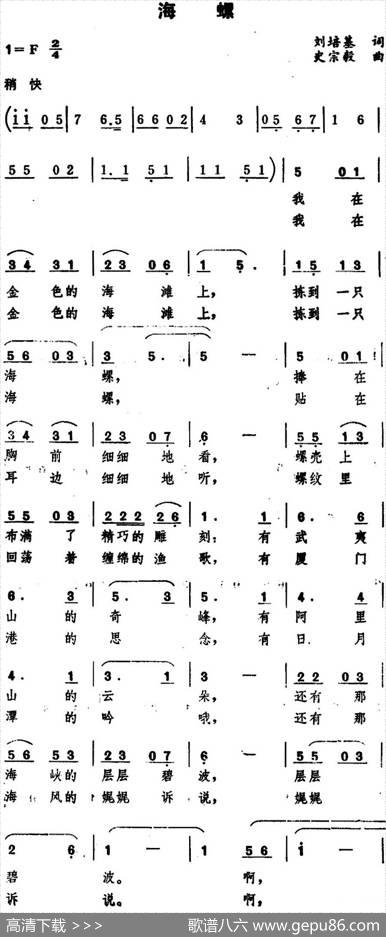 海 螺
1=F 2/4
刘培基 词
史宗毅 曲
稍 快
(i i 05 | 7 6.5 | 6602 | 4 3 | 05 67 | 1 6 |
55 02 | 1.1 51 | 11 51) | 5 01 |
我 在
我 在
34 31 | 23 06 | 1 5. | 15 13 |
金 色的 海 滩 上, 拣到 一只
金 色的 海 滩 上, 拣到 一只
56 03 | 3 5. | 5 — | 5 01 |
海 螺, 捧 在
海 螺, 贴 在
34 31 | 23 07 | 6 — | 55 13 |
胸 前 细细 地 看, 螺壳 上
耳 边 细细 地 听, 螺纹 里
55 03 | 222 26 | 1. 1 | 6. 6 |
布满 了 精巧的 雕 刻; 有 武 夷
回荡 着 缠绵的 渔 歌, 有 厦 门
6. 3 | 5. 3 | 5. 1 | 4. 4 |
山 的 奇 峰, 有 阿 里
港 的 思 念, 有 日 月
4. 1 | 3. 1 | 3 — | 22 03 |
山 的 云 朵, 还有 那
潭 的 吟 哦, 还有 那
56 53 | 23 07 | 6 — | 55 03 |
海 峡的 层层 碧 波, 层层
海 风的 娓娓 诉 说, 娓娓
2 6 | 1 — | 1 56 | i — |
碧 波。 啊,
诉 说。 啊,
高清下载 >>>
歌谱八六 www.gepu86.com